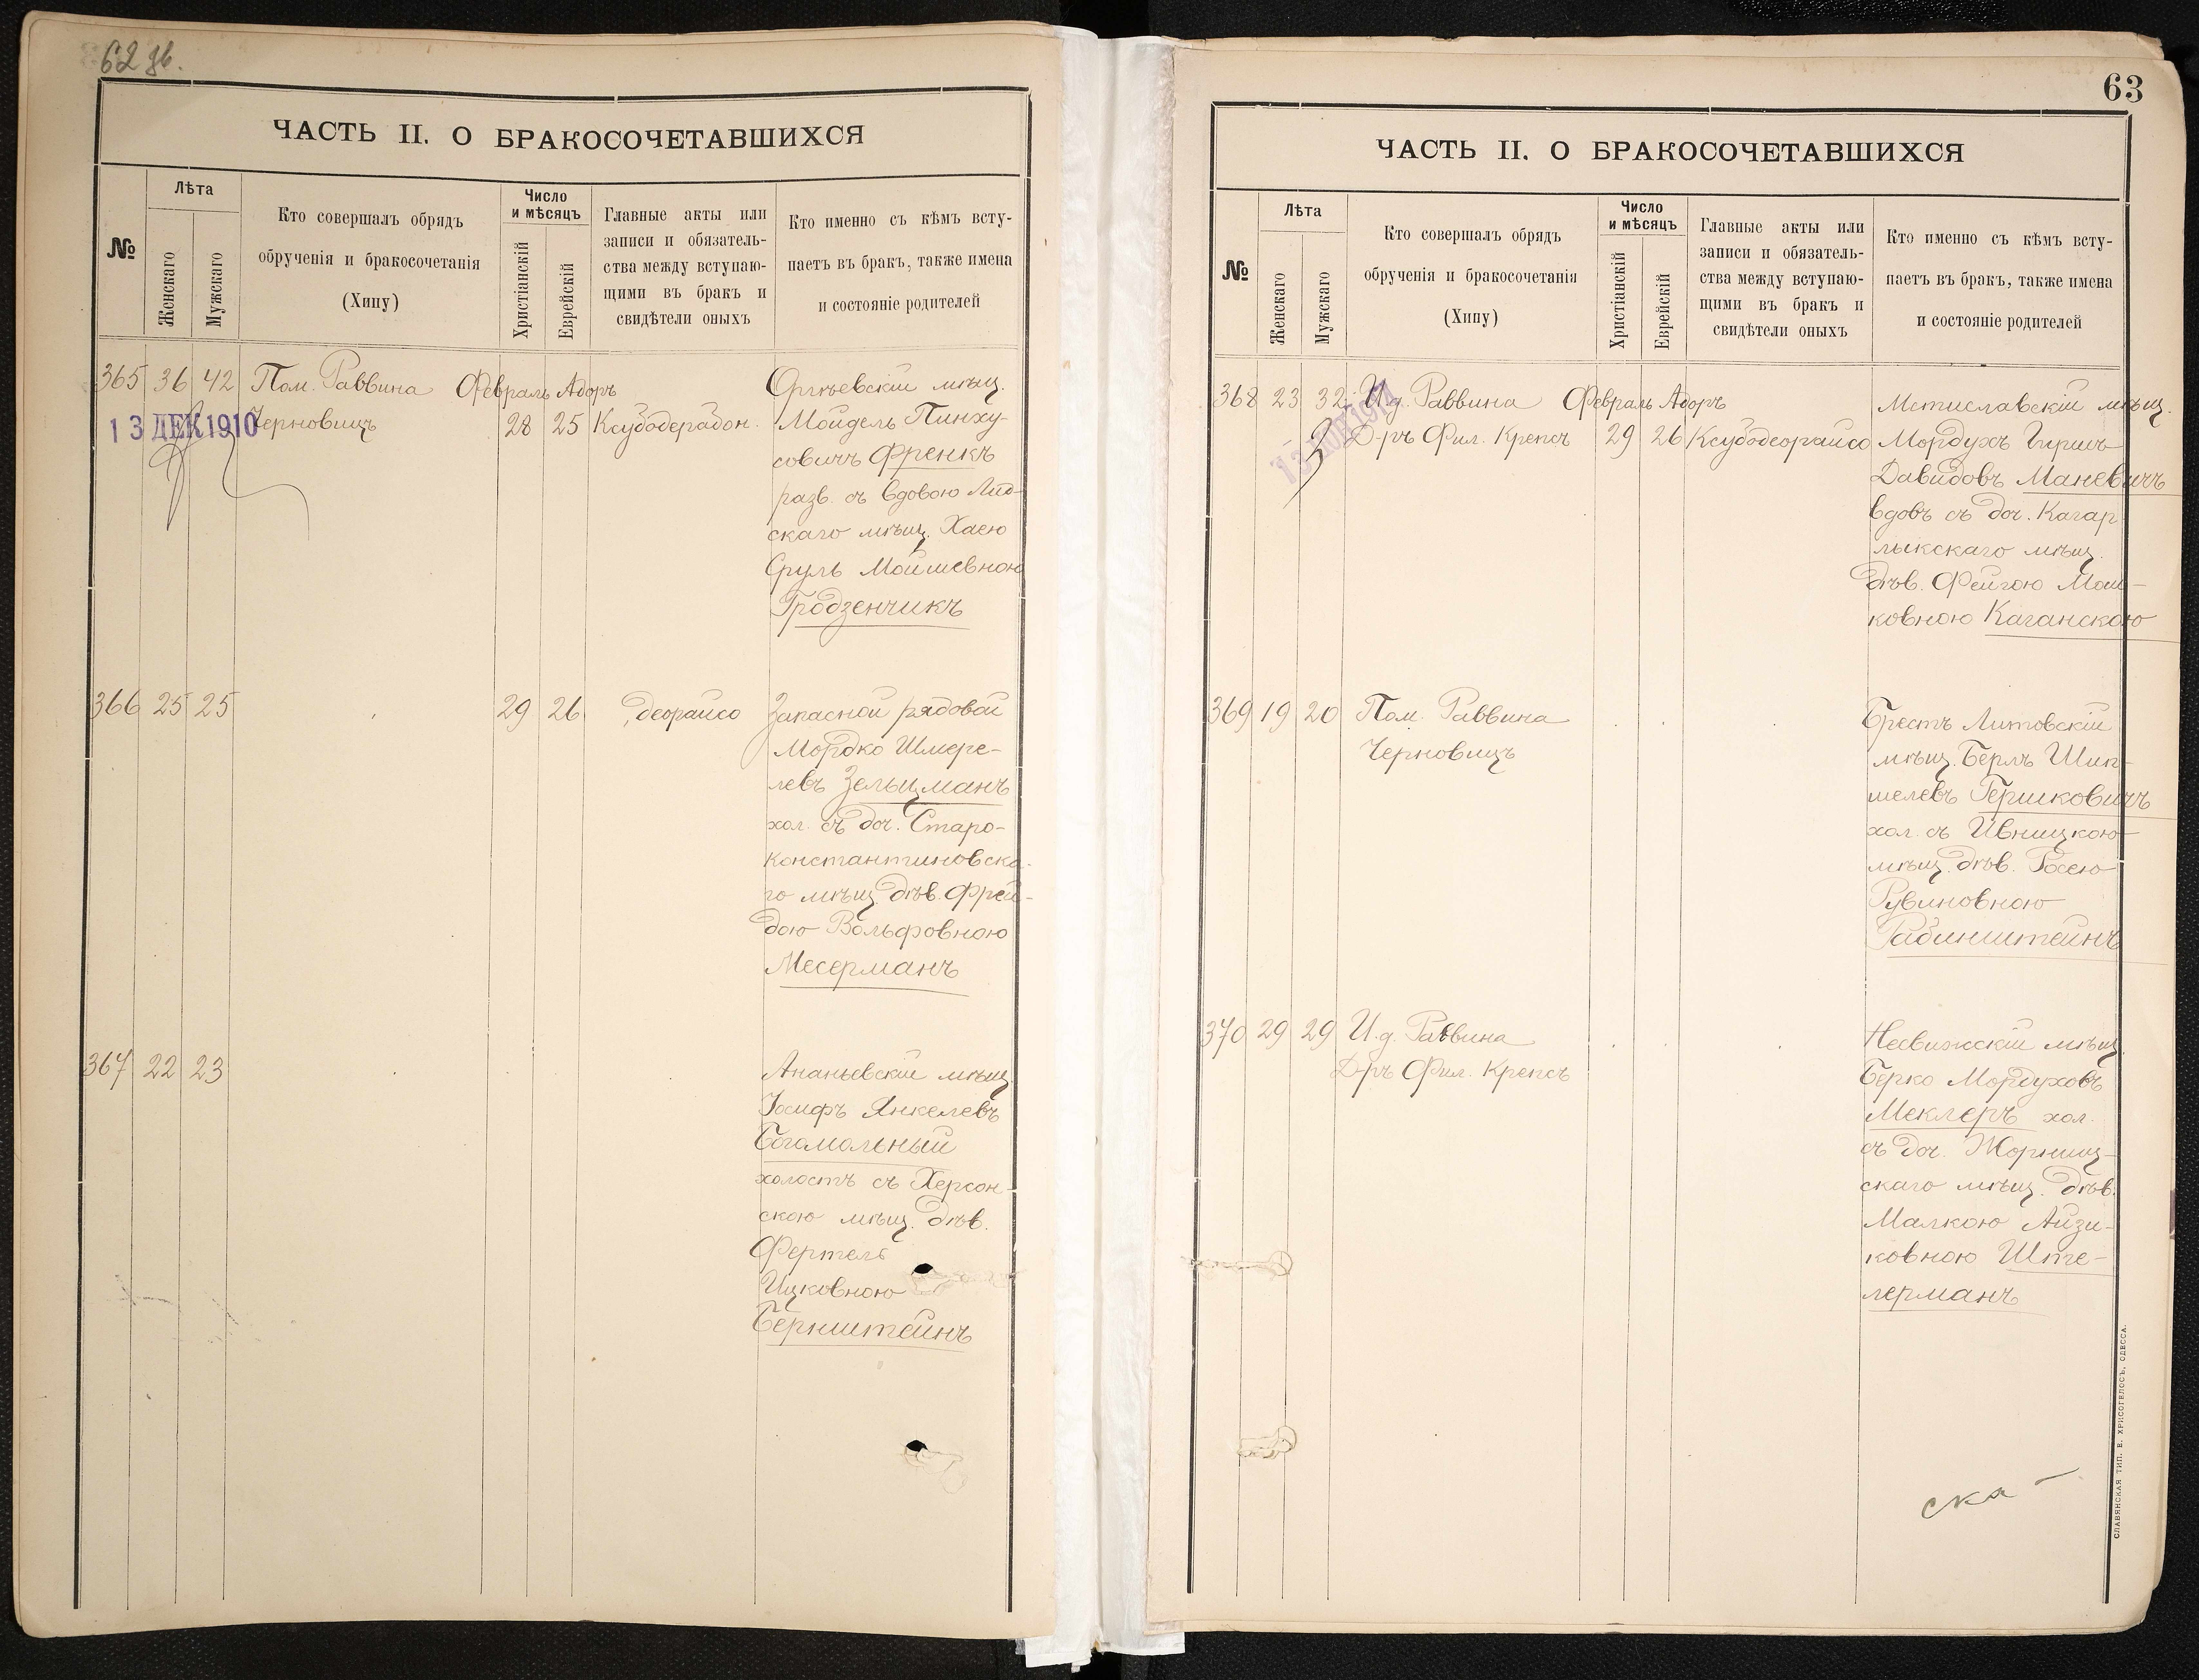 62 зв.
ЧАСТЬ II. О БРАКОСОЧЕТАВШИХСЯ
№
Лѣта
Женскаго
Мужскаго
Кто совершалъ обрядъ
обрученія и бракосочетанія
(Хипу)
Число
и мѣсяцъ
Христіанскій
Еврейскій
Главные акты или
записи и обязатель-
ства между вступаю-
щими въ бракъ и
свидѣтели оныхъ
Кто именно съ кѣмъ всту-
паетъ въ бракъ, также имена
и состояніе родителей
365 36 42 Пом. Раввина Февраль Адоръ
13 ДЕК 1910
Черновицъ 28 25 Ксубодерабон.
Оргѣевскій мѣщ.
Мойдель Пинху-
совичъ Френкъ
разв. съ вдовою Лид-
скаго мѣщ. Хаею
Сруль Мойшевною
Гродзенчикъ
366 25 25 29 26 деорайсо
Запасной рядовой
Мордко Шмере-
левъ Зельцманъ
хол. съ доч. Старо-
константиновска-
го мѣщ. дѣв. Фрей-
дою Вольфовною
Месерманъ
367 22 23
Ананьевскій мѣщ.
Іосифъ Янкелевъ
Богомольный
холостъ съ Херсон-
скою мѣщ. дѣв.
Фертель
Ицковною
Бернштейнъ
63
ЧАСТЬ II. О БРАКОСОЧЕТАВШИХСЯ
№
Лѣта
Женскаго
Мужскаго
Кто совершалъ обрядъ
обрученія и бракосочетанія
(Хипу)
Число
и мѣсяцъ
Христіанскій
Еврейскій
Главные акты или
записи и обязатель-
ства между вступаю-
щими въ бракъ и
свидѣтели оныхъ
Кто именно съ кѣмъ всту-
паетъ въ бракъ, также имена
и состояніе родителей
368 23 32 И.д. Раввина Февраль Адоръ
Д-ръ Фил. Крепсъ 29 26 Ксубодеорайсо
Мстиславскій мѣщ.
Мордухъ Гиршъ
Давидовъ Маневичъ
вдовъ съ доч. Кагар-
лыкскаго мѣщ.
дѣв. Фейгою Мош-
ковною Каганскою
369 19 20 Пом. Раввина
Черновицъ
Брестъ Литовскій
мѣщ. Берлъ Шим-
шелевъ Гершковичъ
хол. съ Ивницкою
мѣщ. дѣв. Рохею
Рувиновною
Рабинштейнъ
370 29 29 И.д. Раввина
Д-ръ Фил. Крепсъ
Несвижскій мѣщ.
Берко Мордуховъ
Меклеръ хол.
съ доч. Жорнищ-
скаго мѣщ. дѣв.
Малкою Айзи-
ковноюШте-
лерманъ
ска
СЛАВЯНСКАЯ ТИП. Е. ХРИСОГЕЛОСЪ, ОДЕССА.